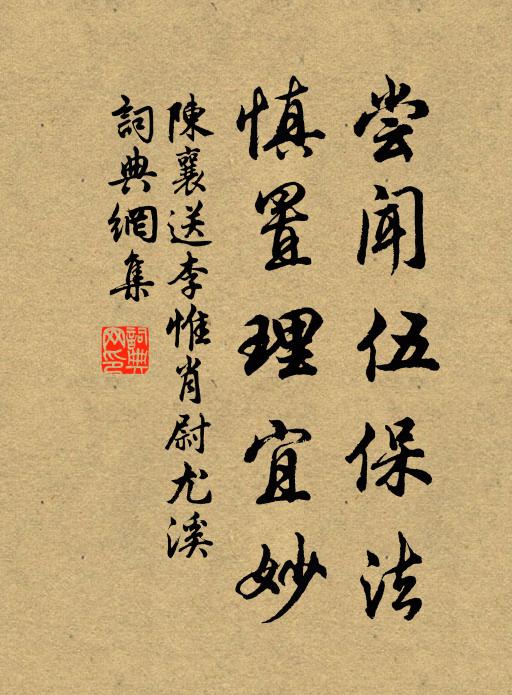 尝闻伍保法
慎置理宜妙
陳襄送李惟肖尉尤溪
詞典網集
詞典网印